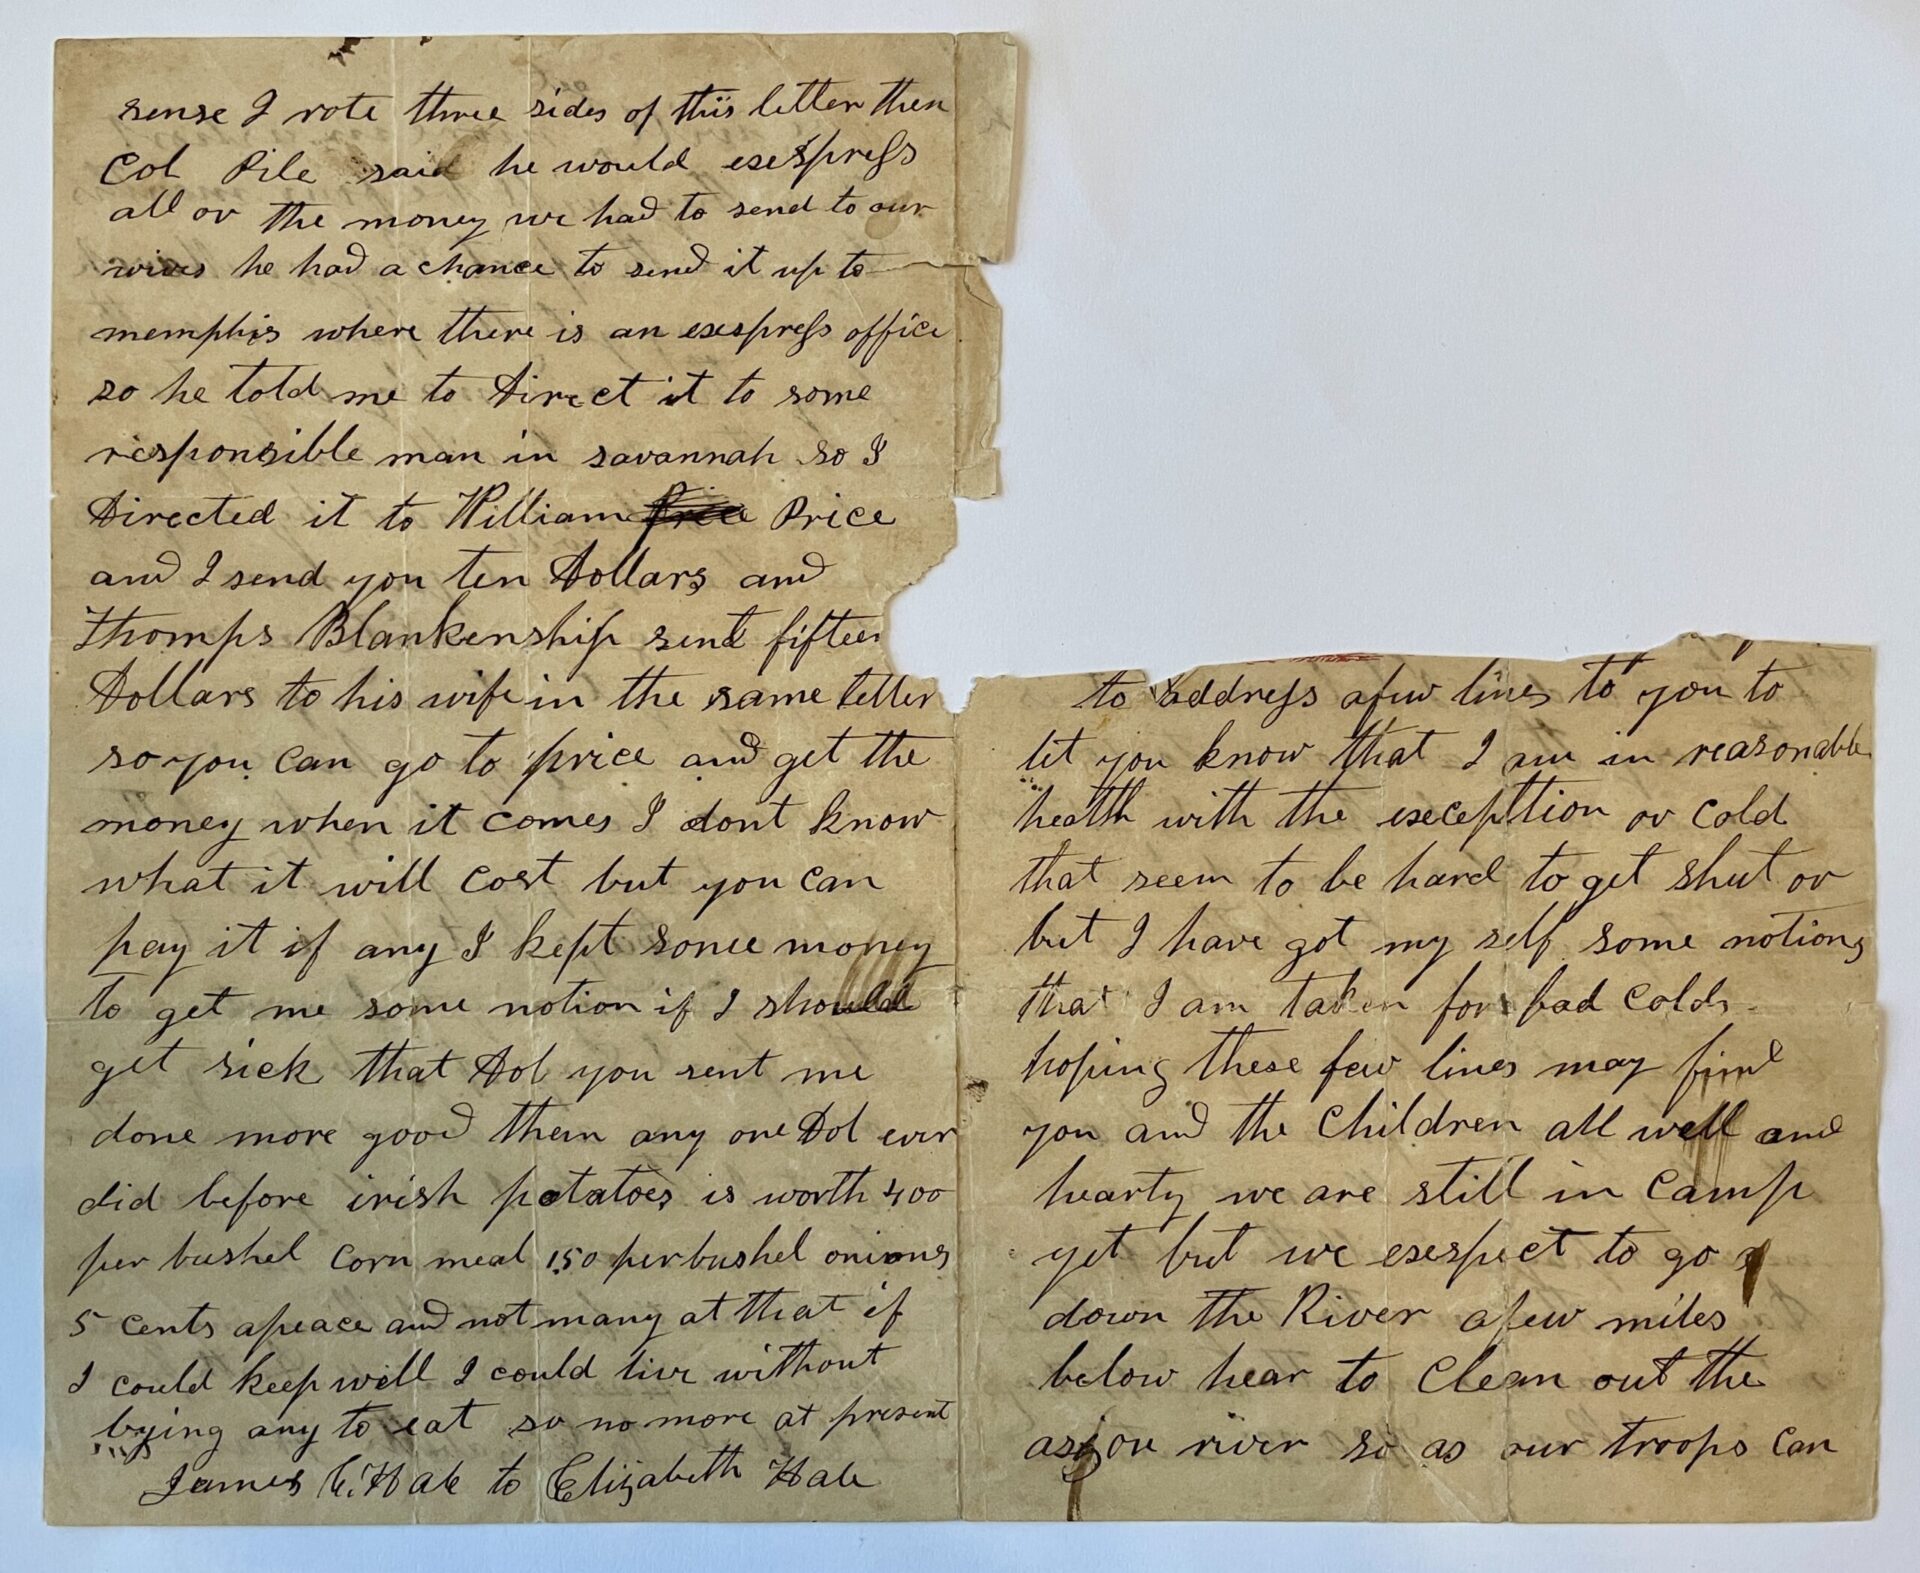 sense I rote three sides of this letter then
Col Pile said he would exespress
all ov the money we had to send to our
wives he had a chance to send it up to
memphis where there is an exespress office
so he told me to Direct it to some
responsible man in savannah so I
Directed it to William Price Price
and I send you ten Dollars and
Thomps Blankenship send fifteen
Dollars to his wife in the same letter
so you can go to price and get the
money when it comes I dont know
what it will cost but you can
pay it if any I kept some money
to get me some notion if I should
get sick that Dol you sent me
done more good then any one Dol ever
did before irish potatoes is worth 400
per bushel corn meal 150 per bushel onions
5 cents apeace and not many at that if
I could keep well I could live without
bying any to eat so no more at present
James C. Hale to Elizabeth Hale
to address afew lines to you to
let you know that I am in reasonable
health with the exeception ov cold
that seem to be hard to get shut ov
but I have got my self some notions
that I am taken for bad colds
hoping these few lines may find
you and the children all well and
hearty we are still in camp
yet but we exespect to go
down the River afew miles
below hear to clean out the
river so as our troops can